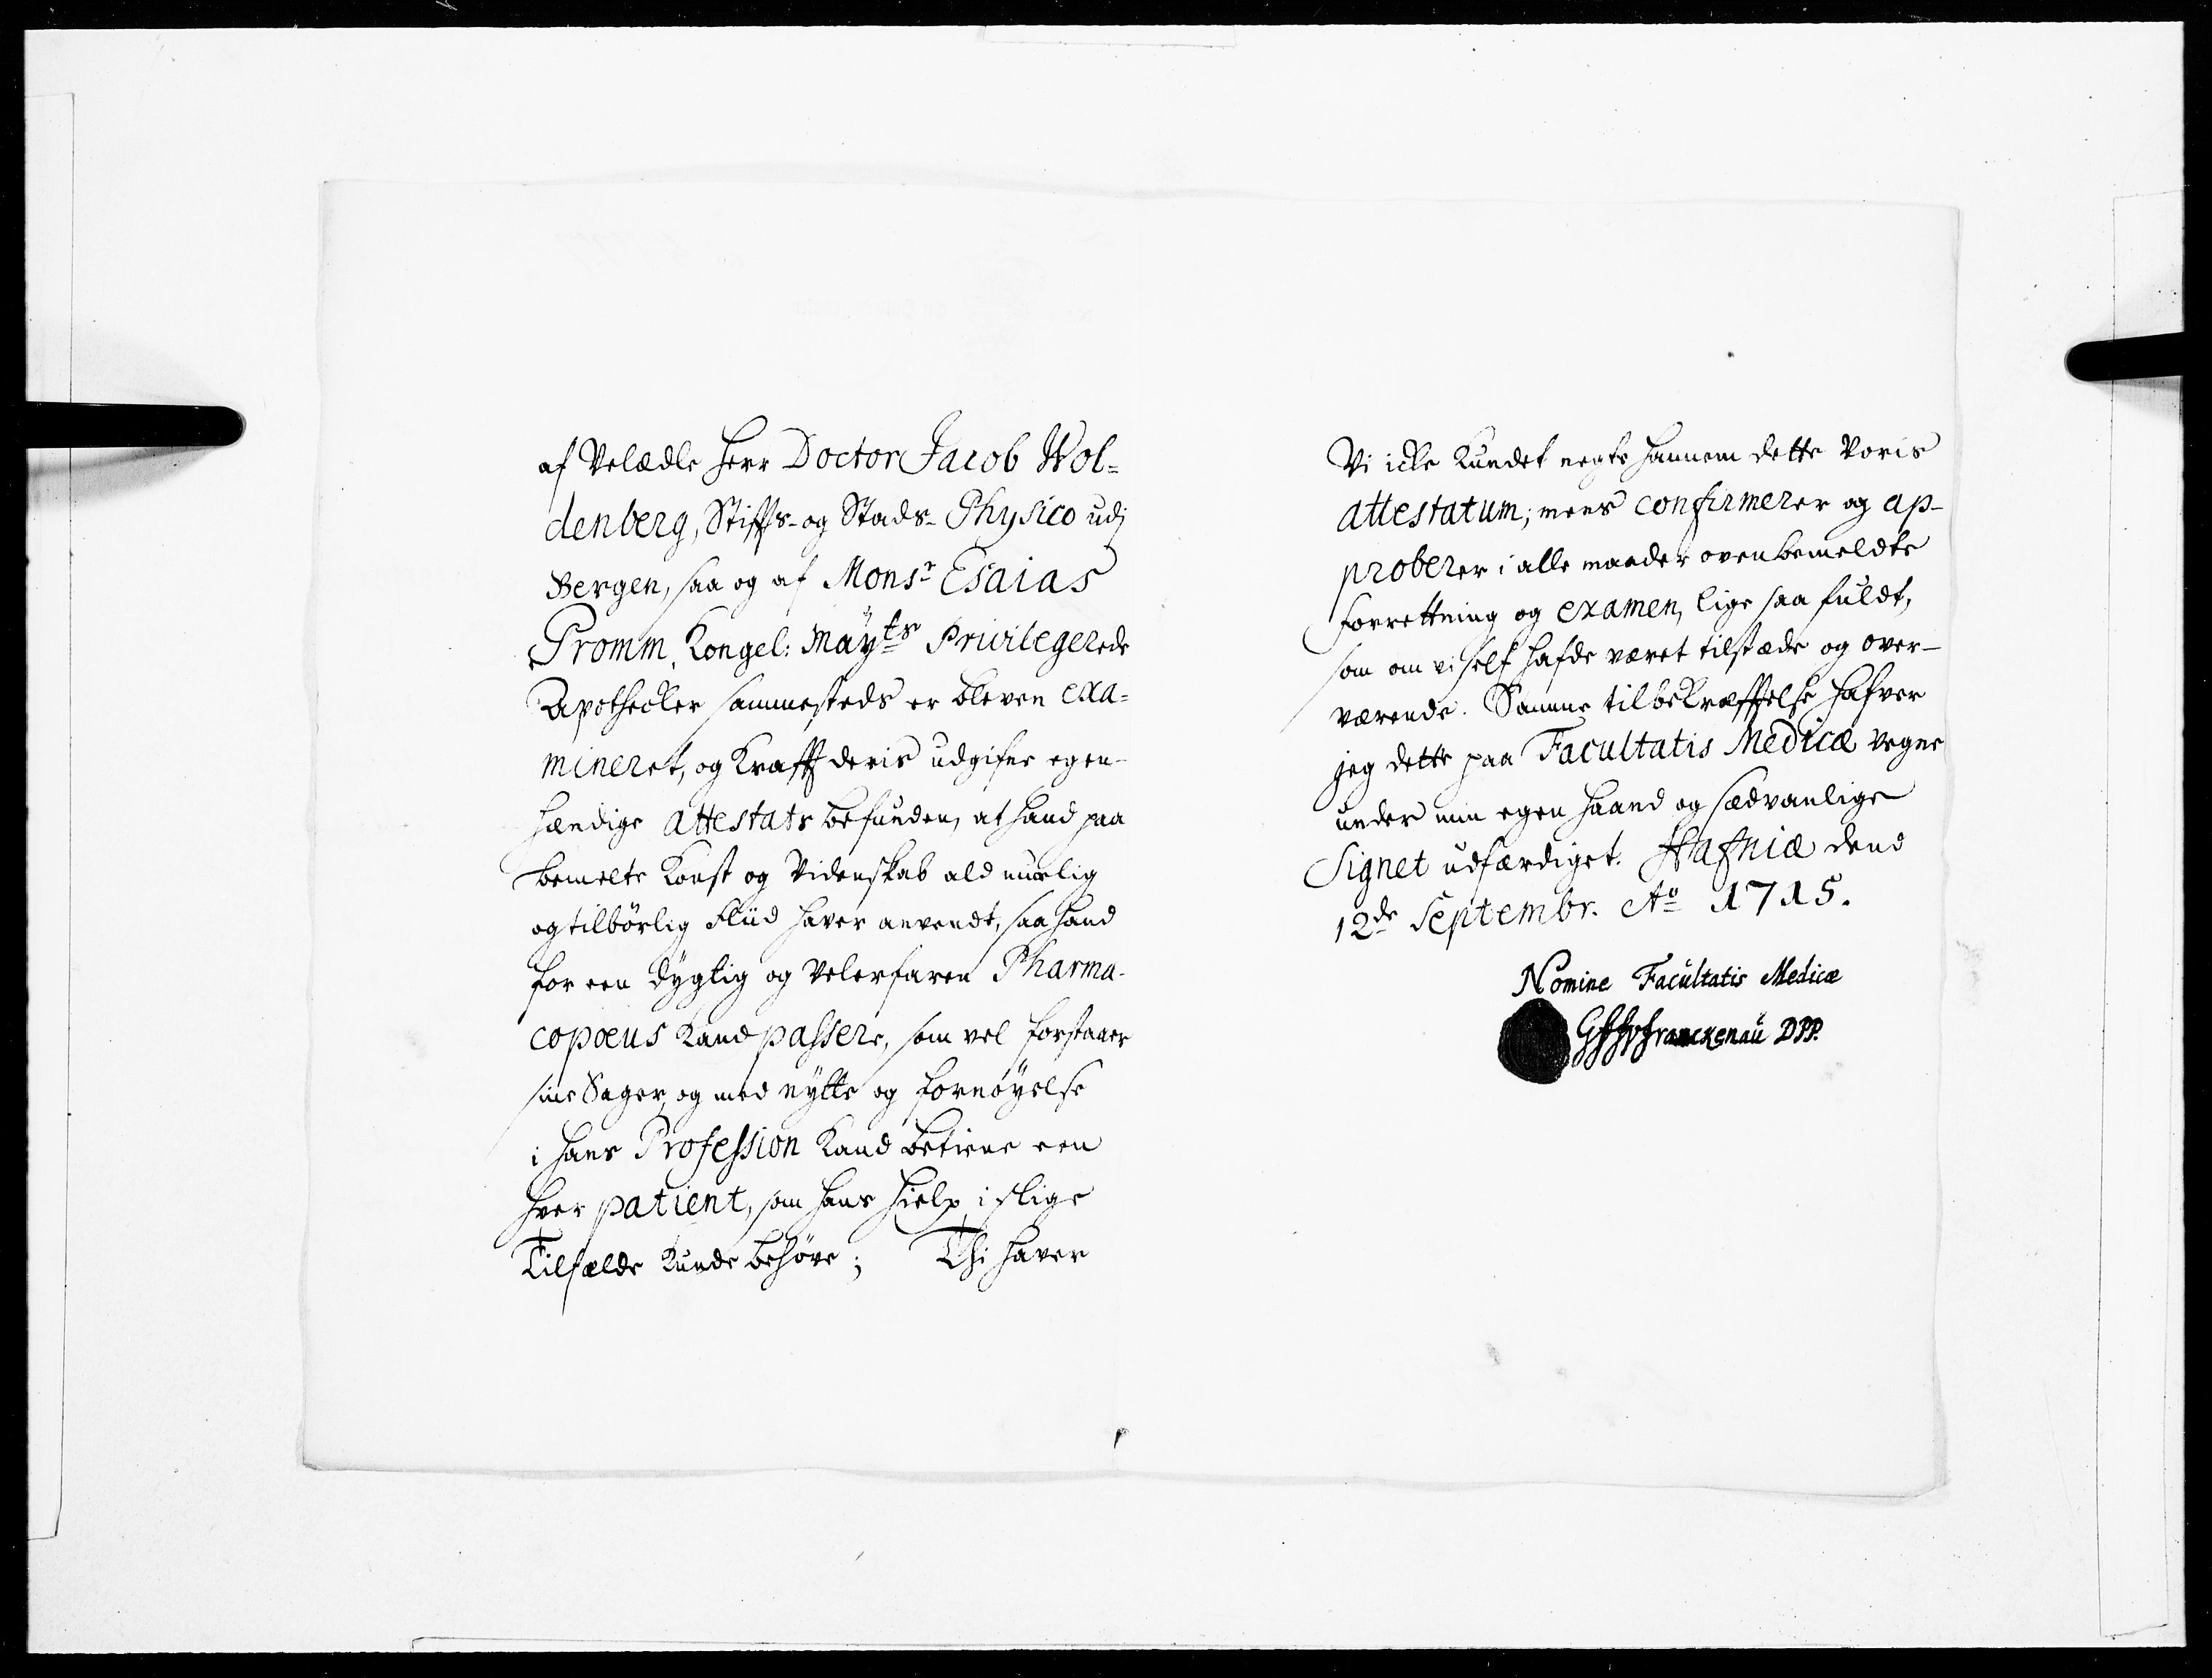 af Velædle Herr Doctor Jacob Wol=
denberg, Stiffts- og Stads- Physico udj
Bergen, saa og af Monsr Esaias
Promm, Kongel: Mayts Privilegerede
Apothecker sammesteds er bleven exa=
mineret, og Krafft deris udgifne egen-
hændige Attestats befunden, at hand paa
bemelte Konst og Videnskab ald muelig
og tilbörlig Fliid haver anvendt, saa hand
for een dygtig og Velerfaren Pharma-
copoeus Kand passere, som vel forstaaer
sine Sager, og med nytte og fornöyelse
i hans Profession Kand betiene een
hver patient, som hans Hielp i slige
Tilfælde Kunde behöve; Thi haver
Vi icke Kundet negte hannem dette Voris
Attestatum; mens confirmerer og ap-
proberer i alle maader ovenbemeldte
forrettning og examen, lige saa fuldt,
som om vi self hafde været tilstæde og over-
værende. Samme til bekræfftelse hafver
jeg dette paa Facultatis Medicæ Vegne
under min egen Haand og sædvanlige
Signet udfærdiget. Hafniæ dend
12de Septembr. Ao 1715.
Nomine Facultatis Medicæ
Franckenau DPP.